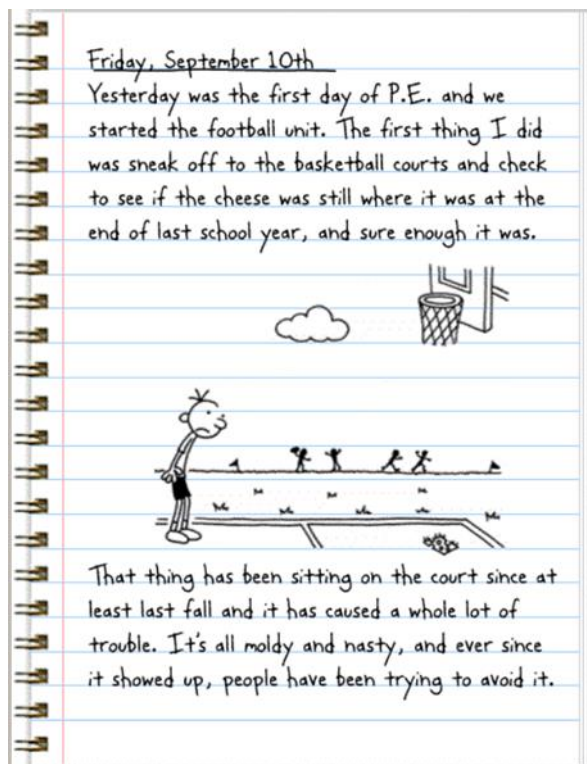 Friday, September 10th
Yesterday was the first day of P.E. and we
started the football unit. The first thing I did
was sneak off to the basketball courts and check
to see if the cheese was still where it was at the
end of last school year, and sure enough it was.
That thing has been sitting on the court since at
least last fall and it has caused a whole lot of
trouble. It's all moldy and nasty, and ever since
it showed up, people have been trying to avoid it.